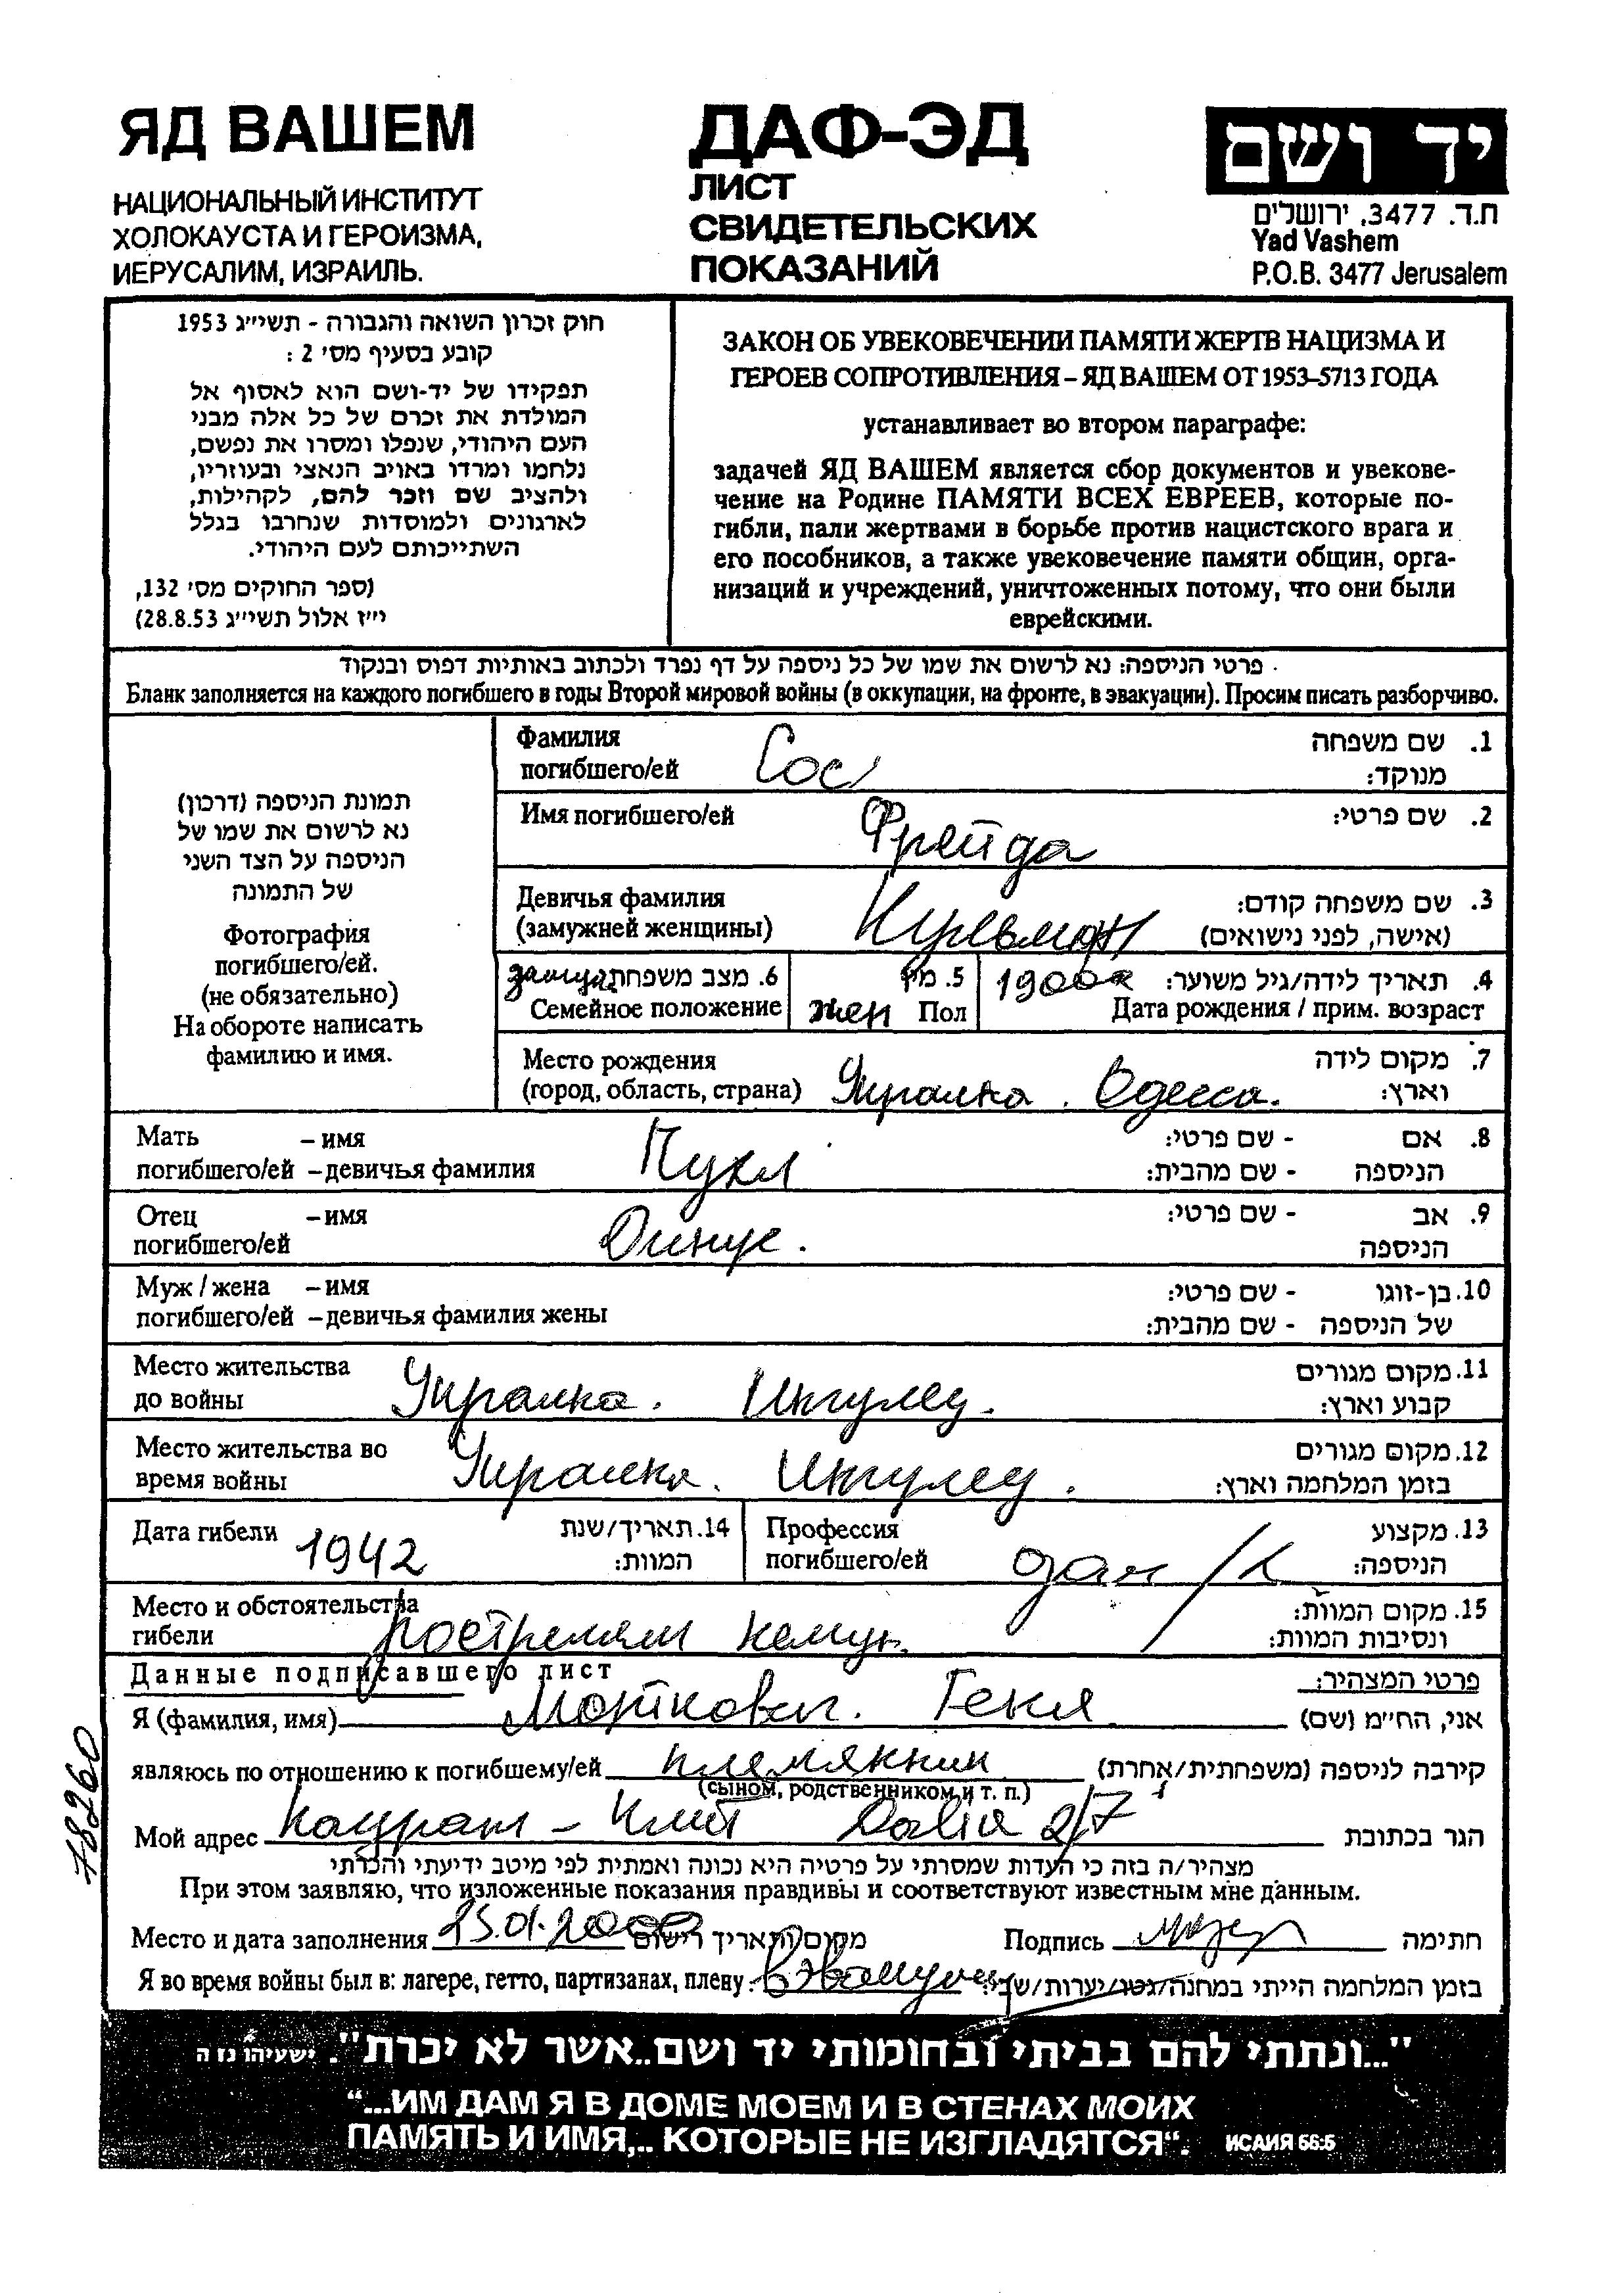 ЯД ВАШЕМ
НАЦИОНАЛЬНЫЙ ИНСТИТУТ
ХОЛОКАУСТА И ГЕРОИЗМА,
ИЕРУСАЛИМ, ИЗРАИЛЬ.
ДАФ-ЭД
ЛИСТ
СВИДЕТЕЛЬСКИХ
ПОКАЗАНИЙ
יד ושם
ת.ד. 3477, ירושלים
Yad Vashem
P.O.B. 3477 Jerusalem
חוק זכרון השואה והגבורה - תשי״ג 1953
קובע בסעיף מס׳ 2 :
תפקידו של יד-ושם הוא לאסוף אל
המולדת את זכרם של כל אלה מבני
העם היהודי, שנפלו ומסרו את נפשם,
נלחמו ומרדו באויב הנאצי ובעוזריו,
ולהציב שם וזכר להם, לקהילות,
לארגונים ולמוסדות שנחרבו בגלל
השתייכותם לעם היהודי.
(ספר החוקים מס׳ 132,
י״ז אלול תשי״ג 28.8.53)
ЗАКОН ОБ УВЕКОВЕЧЕНИИ ПАМЯТИ ЖЕРТВ НАЦИЗМА И
ГЕРОЕВ СОПРОТИВЛЕНИЯ – ЯД ВАШЕМ ОТ 1953–5713 ГОДА
устанавливает во втором параграфе:
задачей ЯД ВАШЕМ является сбор документов и увекове-
чение на Родине ПАМЯТИ ВСЕХ ЕВРЕЕВ, которые по-
гибли, пали жертвами в борьбе против нацистского врага и
его пособников, а также увековечение памяти общин, орга-
низаций и учреждений, уничтоженных потому, что они были
еврейскими.
פרטי הניספה: נא לרשום את שמו של כל ניספה על דף נפרד ולכתוב באותיות דפוס ובנקוד
Бланк заполняется на каждого погибшего в годы Второй мировой войны (в оккупации, на фронте, в эвакуации). Просим писать разборчиво.
תמונת הניספה (דרכון)
נא לרשום את שמו של
הניספה על הצד השני
של התמונה
Фотография
погибшего/ей.
(не обязательно)
На обороте написать
фамилию и имя.
Фамилия שם משפחה .1
погибшего/ей Сос מנוקד:
Имя погибшего/ей Фрейда שם פרטי: .2
Девичья фамилия שם משפחה קודם: .3
(замужней женщины) (אישה, לפני נישואים)
замуж. מצב משפחתי .6 מין .5 1900 תאריך לידה/גיל משוער: .4
Семейное положение жен Пол Дата рождения / прим. возраст
Место рождения מקום לידה .7
(город, область, страна) Украина. Одесса. וארץ:
Мать – имя אם - שם פרטי: .8
погибшего/ей – девичья фамилия הניספה - שם מהבית:
Отец – имя אב - שם פרטי: .9
погибшего/ей הניספה
Муж / жена – имя בן-זוגו - שם פרטי: .10
погибшего/ей – девичья фамилия жены של הניספה - שם מהבית:
Место жительства מקום מגורים .11
до войны Украина. Ингулец. קבוע וארץ:
Место жительства во מקום מגורים .12
время войны Украина. Ингулец. בזמן המלחמה וארץ:
Дата гибели 1942 תאריך/שנת .14
המוות:
Профессия מקצוע .13
погибшего/ей дом / х הניספה:
Место и обстоятельства מקום המוות: .15
гибели ונסיבות המוות:
Данные подписавшего лист פרטי המצהיר:
Я (фамилия, имя) Мойткович. Геня אני, הח״מ (שם)
являюсь по отношению к погибшему/ей племянник קירבה לניספה (משפחתית/אחרת)
(сыном, родственником и т. п.)
Мой адрес Кацрат - Клит Dalia 2/7 הגר בכתובת
מצהיר/ה בזה כי העדות שמסרתי על פרטיה היא נכונה ואמתית לפי מיטב ידיעתי והכרתי
При этом заявляю, что изложенные показания правдивы и соответствуют известным мне данным.
Место и дата заполнения 25.01.2000 מקום ותאריך רישום Подпись חתימה
Я во время войны был в: лагере, гетто, партизанах, плену. В эвакуации בזמן המלחמה הייתי במחנה/גטו/יערות/שבי:
78260
"...ונתתי להם בביתי ובחומותי יד ושם..אשר לא יכרת". ישעיהו נו ה
"...ИМ ДАМ Я В ДОМЕ МОЕМ И В СТЕНАХ МОИХ
ПАМЯТЬ И ИМЯ,.. КОТОРЫЕ НЕ ИЗГЛАДЯТСЯ". ИСАИЯ 56:5